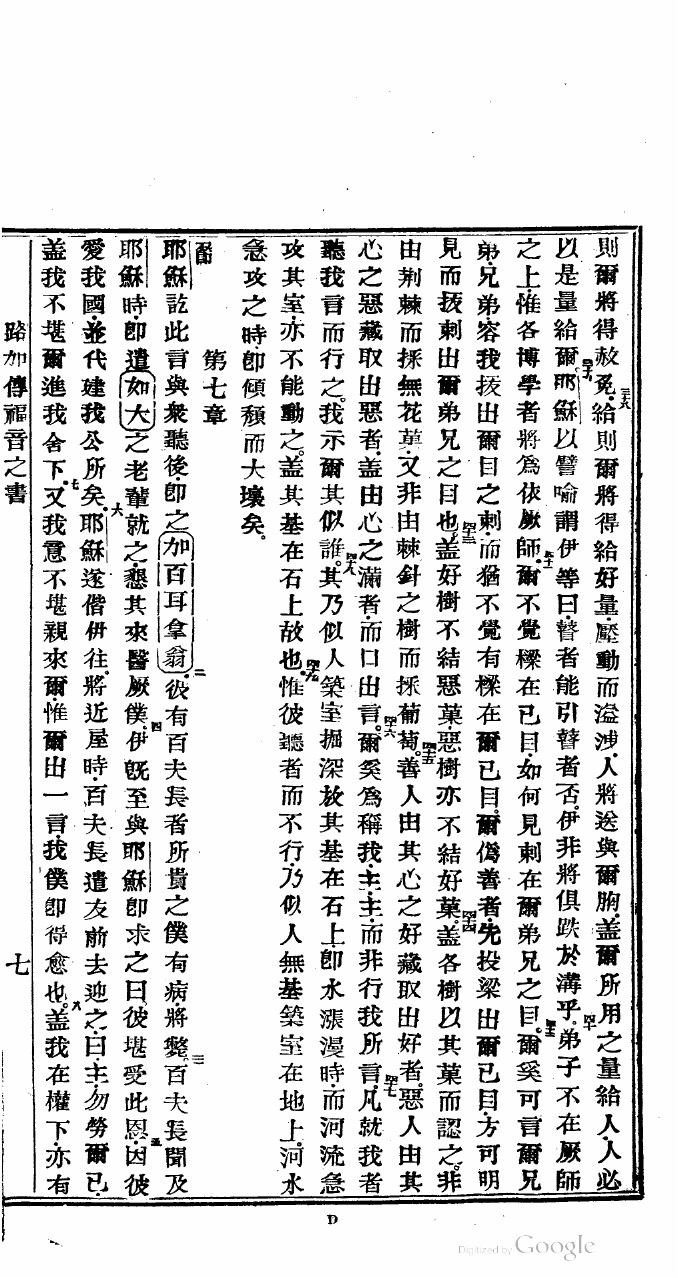 則爾將得赦免.給則爾將得給好量.壓動而溢涉.人將送與爾胸.蓋爾所用之量給人.人必
三八
以是量給爾.耶穌以譬喻謂伊等曰.瞽者能引瞽者否.伊非將俱跌於溝乎.弟子不在厥師
三十九
四十
之上惟各博學者將爲依厥師.爾不覺樑在己目.如何見刺在爾弟兄之目.爾奚可言爾兄
四十一
弟.兄弟容我拔出爾目之刺.而猶不覺有樑在爾已目.爾僞善者.先投梁出爾已目.方可明
見而拔刺出爾弟兄之目也.蓋好樹不結惡菓.惡樹亦不結好菓.蓋各樹以其菓而認之.非
四十三
四十四
由荆棘而採無花菓.又非由棘針之樹而採葡萄.善人由其心之好藏取出好者.惡人由其
四十五
心之惡藏取出惡者.蓋由心之滿者.而口出言.爾奚爲稱我.主.主.而非行我所言.凡就我者
四十六
四十七
聽我言而行之.我示爾其似誰.其乃似人築室掘深放其基在石上.卽水漲漫時.而河流急
四十八
攻其室.亦不能動之.蓋其基在石上故也.惟彼聽者而不行.乃似人無基築室在地上.河水
四十九
急攻之時.卽傾頹而大壞矣.
第七章
耶穌訖此言與衆聽後.卽之加百耳拿翁.彼有百夫長者所貴之僕有病.將斃.百夫長聞及
二
三
耶穌時.卽遣如大之老輩就之.懇其來醫厥僕.伊旣至與耶穌卽求之曰.彼堪受此恩.因彼
四
五
愛我國.並代建我公所矣.耶穌遂偕伊往.將近屋時.百夫長遣友前去迎之.曰主.勿勞爾已.
六
蓋我不堪爾進我舍下.又我意不堪親來爾.惟爾出一言.我僕卽得愈也.蓋我在權下.亦有
七
八
路加傳福音之書
七
D
Digitized by Google